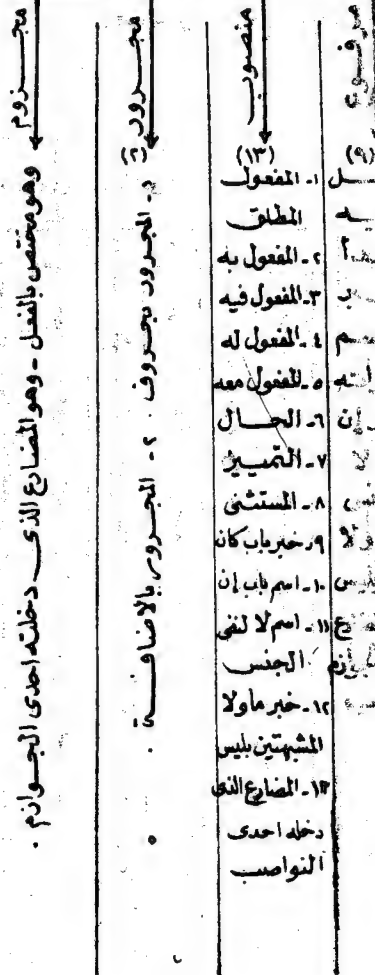 منصوب
(١٣)
١- المفعول
المطلق
٢- المفعول به
٣- المفعول فيه
٤- المفعول له
٥- المفعول معه
٦- الحال
٧- التمييز
٨- المستثنى
٩- خبر باب كان
١٠- اسم باب إن
١١- اسم لا لنفى
الجنس
١٢- خبر ما ولا
المشبهتين بليس
١٣- المضارع الذى
دخله احدى
النواصب
مجرور
المجرور بحروف . ٢- المجرور بالاضافة .
مجزوم
وهو مختص بالفعل - وهو المضارع الذى دخلته احدى الجوازم .